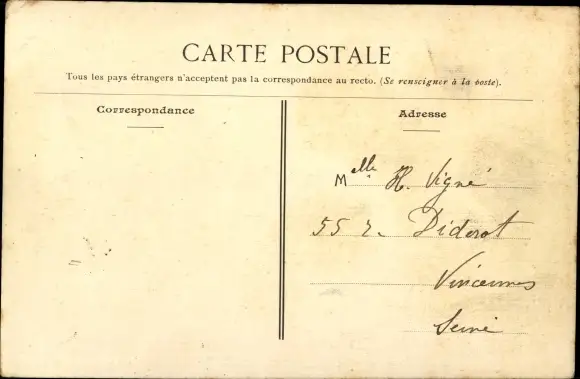 CARTE POSTALE
Tous les pays étrangers n'acceptent pas la correspondance au recto. (Se renseigner à la poste).
Correspondance
Adresse
Melle H. Vigné
55 r. Diderot
Vincennes
Seine